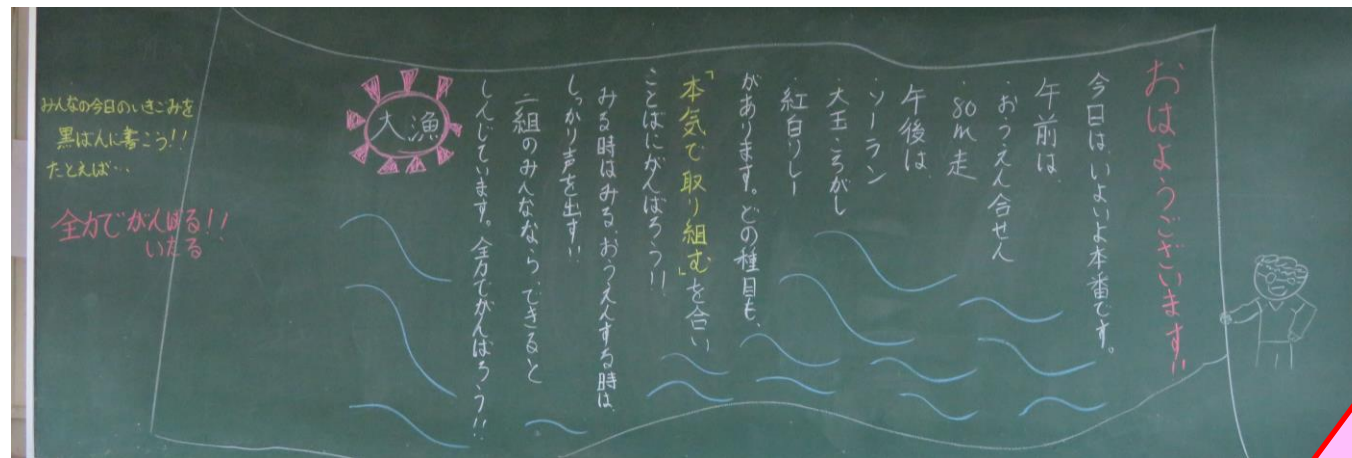 おはようございます!!
今日は、いよいよ本番です。
午前は、
・おうえん合せん
・80m走
午後は、
・ソーラン
・大玉ころがし
・紅白リレー
があります。どの種目も、
「本気で取り組む」を合い
ことばにがんばろう!!
みる時はみる、おうえんする時は、
しっかり声を出す!!
二組のみんななら、できると
しんじています。全力でがんばろう!!
大漁
みんなの今日のいきごみを
黒ばんに書こう!!
たとえば…
全力でがんばる!!
いたる